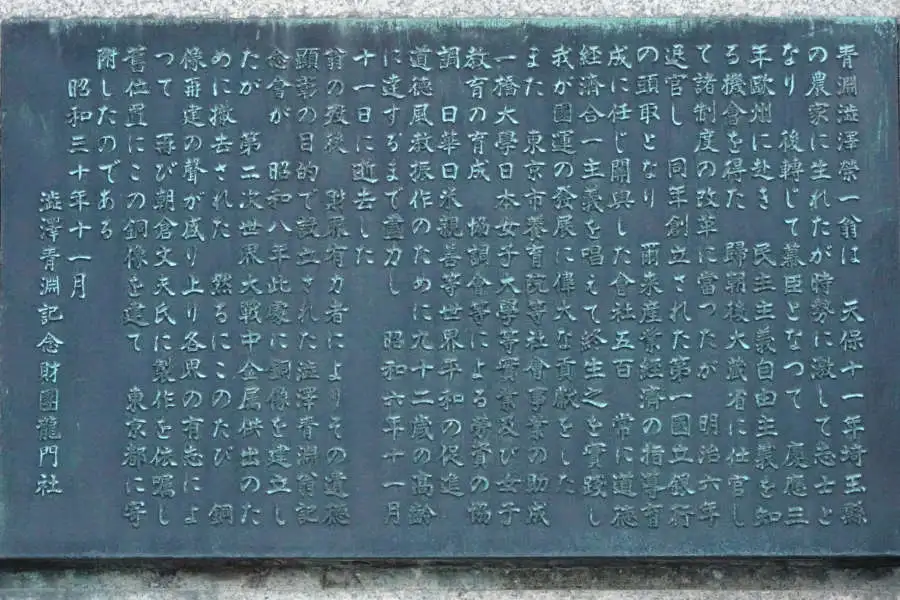 青淵澁澤榮一翁は　天保十一年埼玉縣
の農家に生れたが時勢に激して志士と
なり　後轉じて幕臣となつて　慶應三
年歐州に赴き　民主主義自由主義を知
る機會を得た　歸朝後大藏省に仕官し
て諸制度の改革に當つたが　明治六年
退官し　同年創立された第一國立銀行
の頭取となり　爾来産業経済の指導育
成に任じ關與した會社五百　常に道徳
経済合一主義を唱えて終生之を實践し
我が國運の發展に偉大な貢献をした
また　東京市養育院等社會事業の助成
一橋大學日本女子大學等實業及び女子
教育の育成　協調會等による労資の協
調　日華日米親善等世界平和の促進
道徳風教振作のために九十二歳の高齢
に達するまで盡力し　昭和六年十一月
十一日に逝去した
翁の歿後　財界有力者によりその遺徳
顕彰の目的で設立された澁澤青淵翁記
念會が　昭和八年此處に銅像を建立し
たが　第二次世界大戦中金属供出のた
めに撤去された　然るにこのたび　銅
像再建の聲が盛り上り各界の有志によ
つて　再び朝倉文夫氏に製作を依嘱し
舊位置にこの銅像を建て　東京都に寄
附したのである
昭和三十年十一月
澁澤青淵記念財團龍門社